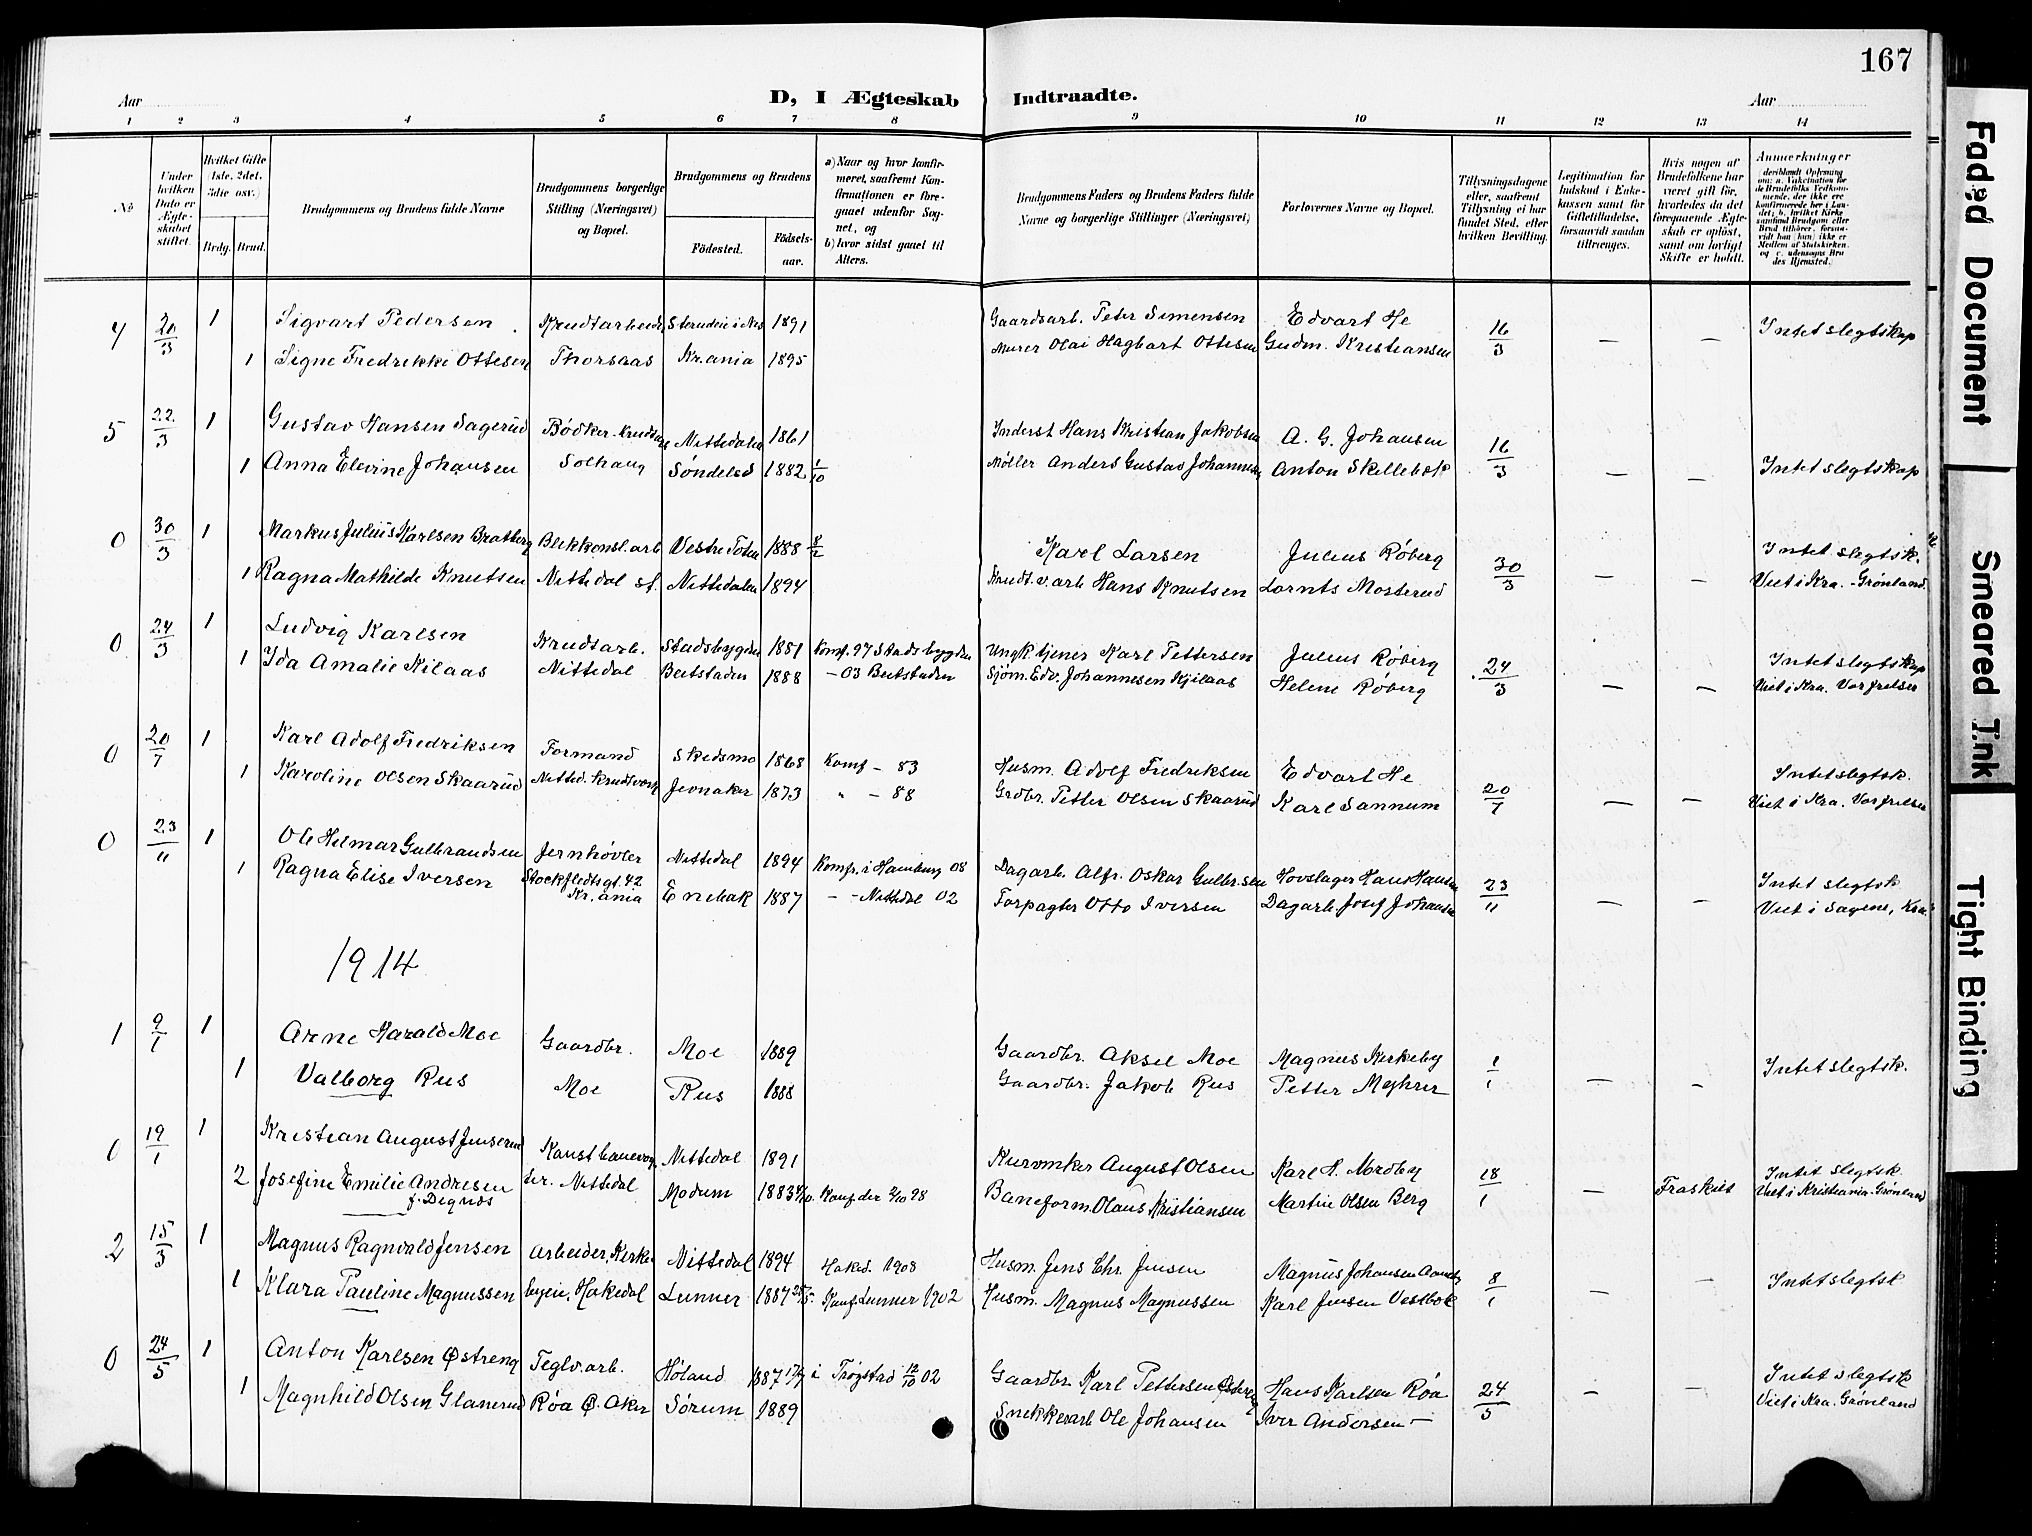 167
Aar
D, I Ægteskab Indtraadte.
Aar
1 2 3 4 5 6 7 8 9 10 11 12 13 14
No
Under hvilken Dato er Ægteskabet stiftet.
Hvilket Gifte (1ste, 2det, 3die osv.)
Brdg. Brud.
Brudgommens og Brudens fulde Navne
Brudgommens borgerlige Stilling (Næringsvei) og Bopæl.
Brudgommens og Brudens
Fødested.
Fødselsaar.
a) Naar og hvor konfirmeret, saafremt Konfirmationen er foregaaet udenfor Sognet, og
b) hvor sidst gaaet til Alters.
Brudgommens Faders og Brudens Faders fulde Navne og borgerlige Stillinger (Næringsvei)
Forlovernes Navne og Bopæl.
Tillysningsdagene eller, saafremt Tillysning ei har fundet Sted, efter hvilken Bevilling.
Legitimation for Indskud i Enkekassen samt for Giftetilladelse, forsaavidt saadan tiltrænges.
Hvis nogen af Brudefolkene har været gift før, hvorledes da det foregaaende Ægteskab er opløst, samt om lovligt Skifte er holdt.
Anmerkninger
4 20/3 1 Sigvart Pedersen Krudtarbeid. 1891 Gaardsarb. Peter Simensen Edvart He 16/3 — — Intet slegtskap
1 Signe Fredrikke Ottesen Thorsaas Kr.ania 1895 Murer Olai Hagbart Ottesen Gudm. Kristiansen
5 22/3 1 Gustav Hansen Sagerud Bødker Nittedalen 1861 Inderst Hans Kristian Jakobsen A. G. Johansen 16/3 — — Intet slegtskap
1 Anna Elevine Johansen Solhaug Søndeled 1882 1/10 Møller Anders Gustav Johannesen Anton Skillebek
0 30/3 1 Markus Julius Karlsen Bratberg Blikkonsl.arb Vestre Toten 1888 8/2 Karl Larsen Julius Røberg 30/3 — — Intet slegtsk.
1 Ragna Mathilde Knutsen Nittedal st. Nittedalen 1894 Krudt.v.arb Hans Knutsen Lornts Mosterud Viet i Kra. - Grønland.
0 24/3 1 Ludvig Karlsen Krudtarb. Stadsbygden 1881 Konf. 97 Stadsbygden Ungk. tjener Karl Pettersen Julius Røberg 24/3 — — Intet slegtskap
1 Ida Amalie Kilaas Nittedal Beitstaden 1888 — 03 Beitstaden Sjøm. Edv. Johannesen Kjilaas Helene Røberg Viet i Kra. Vor frelser
0 20/7 1 Karl Adolf Fredriksen Formand Skedsmo 1868 Konf — 83 Husm. Adolf Fredriksen Edvart He 20/7 — — Intet slegtsk.
1 Karoline Olsen Skaarud Nitted. Krudtverk Jevnaker 1873 " — 88 Grdbr. Petter Olsen Skaarud Karl Sannum Viet i Kra. Vor frelser
0 23/11 1 Ole Hilmar Gulbrandsen Jernhøvler Nittedal 1894 Konf. i Hamburg 08 Dagarb. Alfr. Oskar Gulbr.sen Hovslager Hans Hansen 23/11 — — Intet slegtsk.
1 Ragna Elise Iversen Stockfledtsgt. 42 Kr.ania Enebak 1887 — - Nittedal 02 Forpagter Otto Iversen Dagarb. Josef Johansen Viet i Sagene, Kra.
1914
1 9/1 1 Arne Harald Moe Gaardbr. Moe 1889 Gaardbr. Aksel Moe Magnus Kirkeby 1/1 — — Intet slegtsk.
1 Valborg Rus Moe Rus 1888 Gaardbr. Jakob Rus Petter Myhrer
0 19/1 1 Kristian August Jenserud Nittedal 1891 Kurvmker August Olsen Karl H. Nordby 18/1 — Fraskilt Intet slegtsk.
2 Josefine Emilie Andresen f. Degnæs ter. Nittedal Modum 1883 Konf der 2/10 98 Baneform. Olaus Kristiansen Martin Olsen Berg Viet i Kristiania-Grønland
2 15/3 1 Magnus Ragnvald Jensen Arbeider, Kirke- Nittedal 1894 Haked. 1908 Husm. Jens Chr. Jensen Magnus Johansen 8/1 — — Intet slegtsk
1 Klara Pauline Magnussen byen, Hakedal Lunner 1887 Konf Lunner 1902 Husm. Magnus Magnussen Karl Jensen Vestbok
0 24/5 1 Anton Karlsen Østreng Teglv.arb. Høland 1887 i Trøgstad 12/10 02 Gaardbr Karl Pettersen Østreng Hans Karlsen Røa 24/5 — — Intet slegtsk
1 Magnhild Olsen Glanerud Røa Ø. Aker Sørum 1889 Snekkerarb Ole Johansen Iver Andersen — Viet i Kra. Grønland
Faded Document
Smeared Ink
Tight Binding